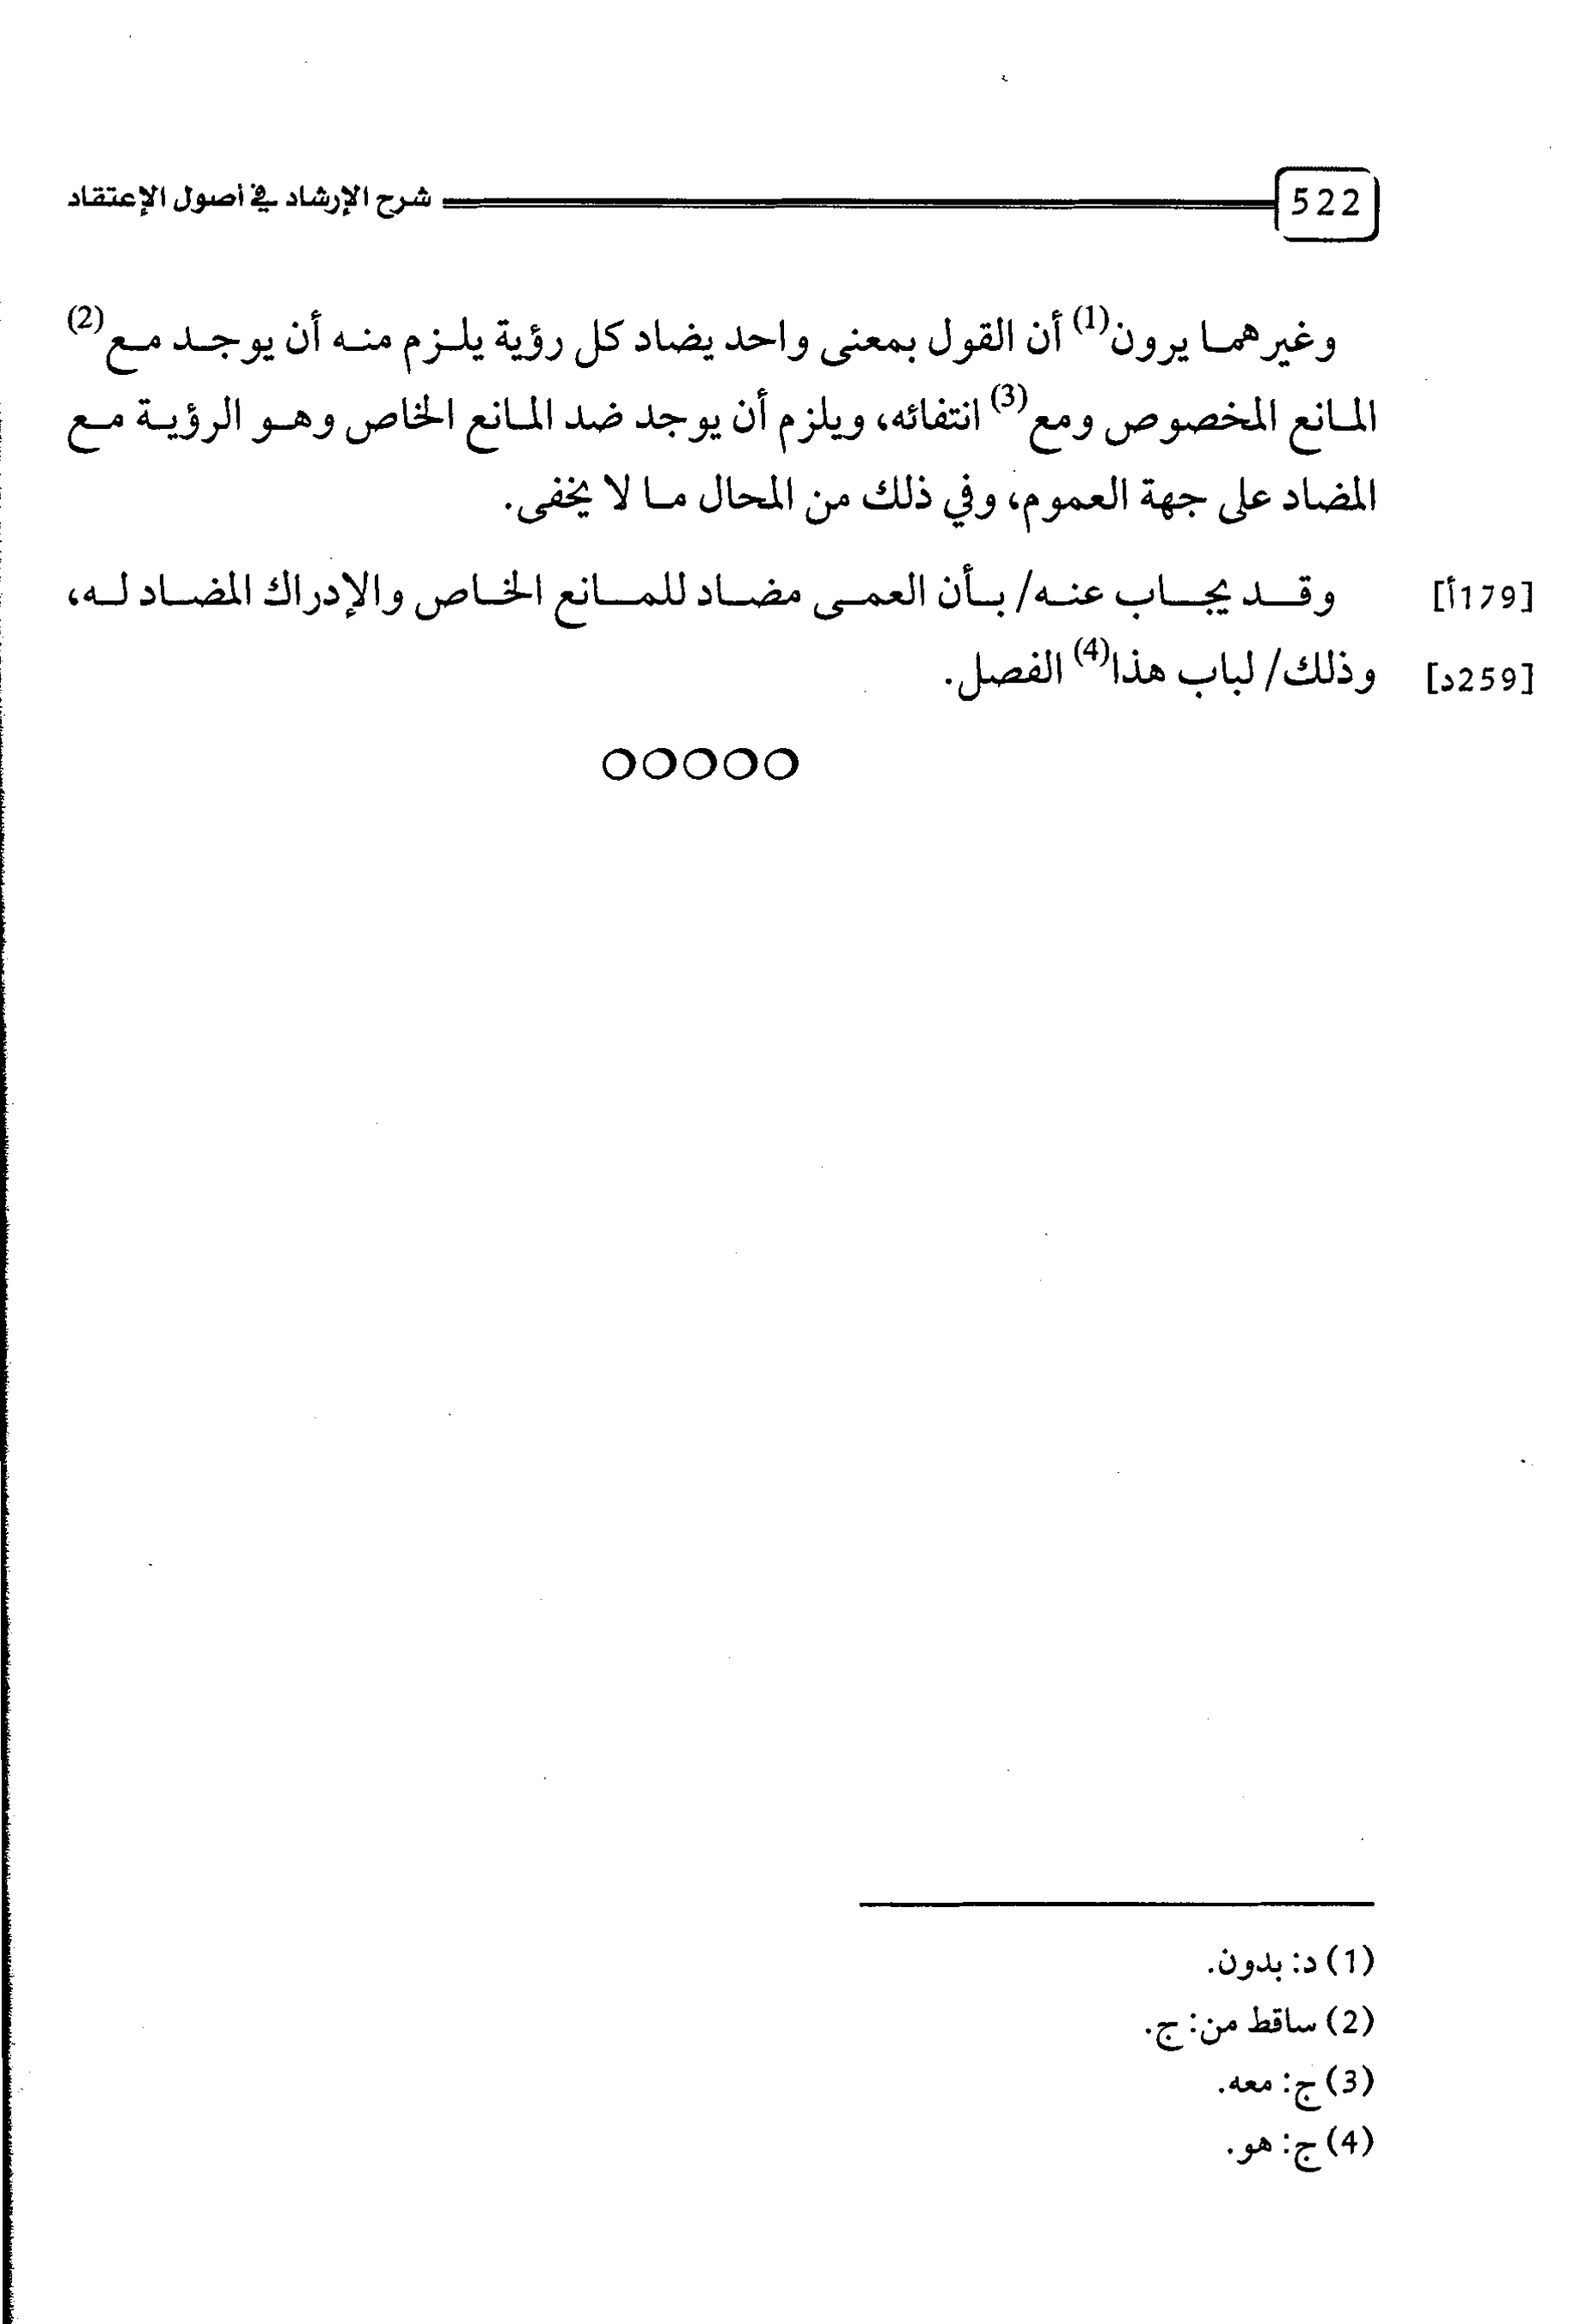 522 شرح الإرشاد في أصول الإعتقاد
وغيرهما يرون(1) أن القول بمعنى واحد يضاد كل رؤية يلزم منه أن يوجد مع(2)
المانع المخصوص ومع(3) انتفائه، ويلزم أن يوجد ضد المانع الخاص وهو الرؤية مع
المضاد على جهة العموم، وفي ذلك من المحال ما لا يخفى.
[179أ] وقد يجاب عنه/ بأن العمى مضاد للمانع الخاص والإدراك المضاد له،
[259د] وذلك/ لباب هذا(4) الفصل.
(1) د: بدون.
(2) ساقط من: ج.
(3) ج: معه.
(4) ج: هو.